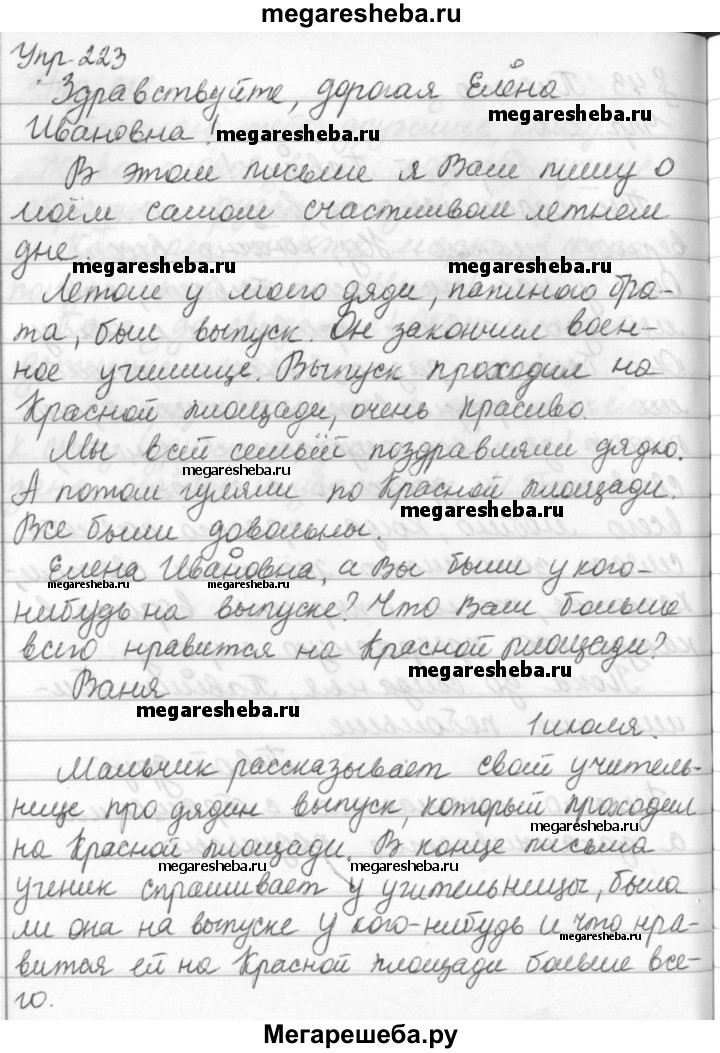 megaresheba.ru
Упр 223
Здравствуйте, дорогая Елена
megaresheba.ru
Ивановна!
megaresheba.ru
В этом письме я Вам пишу о
моём самом счастливом летнем
дне.
megaresheba.ru
megaresheba.ru
Летом у моего дяди, папиного бра-
та, был выпуск. Он закончил воен-
ное училище. Выпуск проходил на
Красной площади, очень красиво.
Мы всей семьёй поздравляли дядю.
megaresheba.ru
А потом гуляли по Красной площади.
megaresheba.ru
Все были довольны.
Елена Ивановна, а Вы были у кого-
megaresheba.ru
megaresheba.ru
нибудь на выпуске? Что Вам больше
всего нравится на Красной площади?
megaresheba.ru
Ваня
megaresheba.ru
1 июля.
Мальчик рассказывает своей учитель-
нице про дядин выпуск, который проходил
megaresheba.ru
на Красной площади. В конце письма
megaresheba.ru
megaresheba.ru
ученик спрашивает у учительницы, была
ли она на выпуске у кого-нибудь и что нра-
megaresheba.ru
вится ей на Красной площади больше все-
го.
Мегарешеба.ру